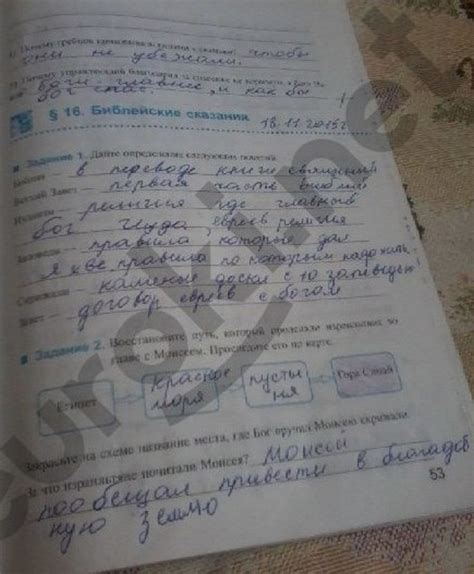 чтобы
они не убежали.
боги главные, и как бы
бог спас.
§ 16. Библейские сказания
18.11.2015г
Задание 1. Дайте определение следующих понятий.
Библия — в переводе книги священный
Ветхий Завет — первая часть библии
Иудаизм — религия где главный
бог Иуда, евреев религия
Заповеди — правила которые дал
Яхве, правила по которым надо жить.
Скрижали — каменые доски с 10 заповедью
Завет — договор евреев с богом
Задание 2. Восстановите путь, который проделали израильтяне во
главе с Моисеем. Проследите его по карте.
Египет
красное
моря
пусты
ня
Гора Синай
на схеме название места, где Бог вручил Моисею скрижали.
За что израильтяне почитали Моисея? Моисей
пообещал привести в благадот
ную землю
53
eureki.net